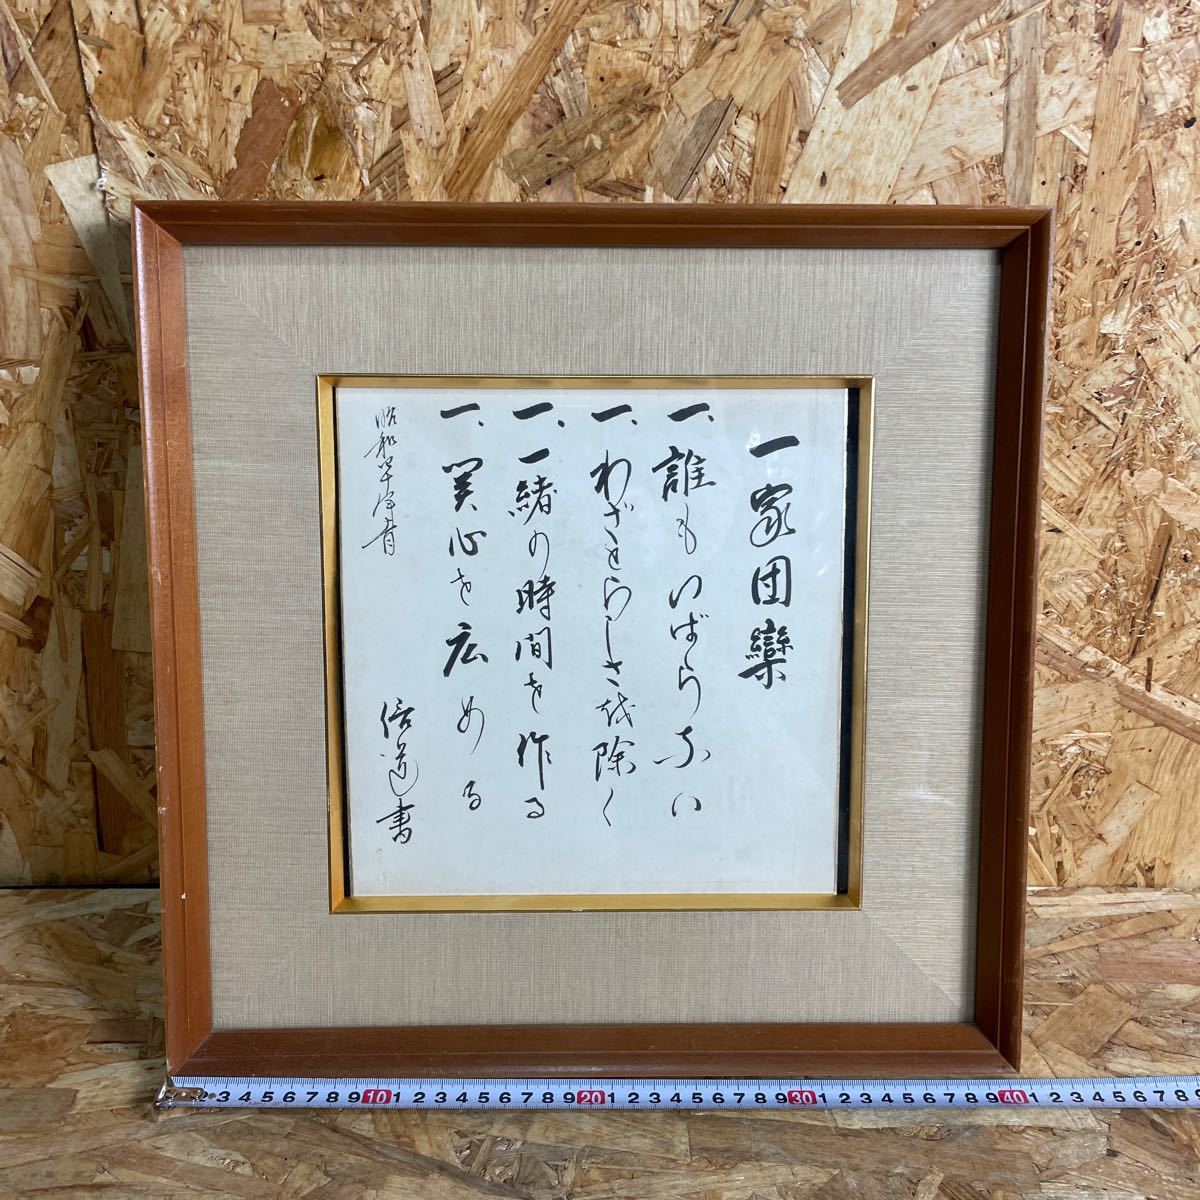 一家団欒
一、誰もいばらない
一、わざとらしさを除く
一、一緒の時間を作る
一、関心を広める
昭和
信道書
2 3 4 5 6 7 8 9 10 1 2 3 4 5 6 7 8 9 20 1 2 3 4 5 6 7 8 9 30 1 2 3 4 5 6 7 8 9 40 1 2 3 4 5 6 7 8